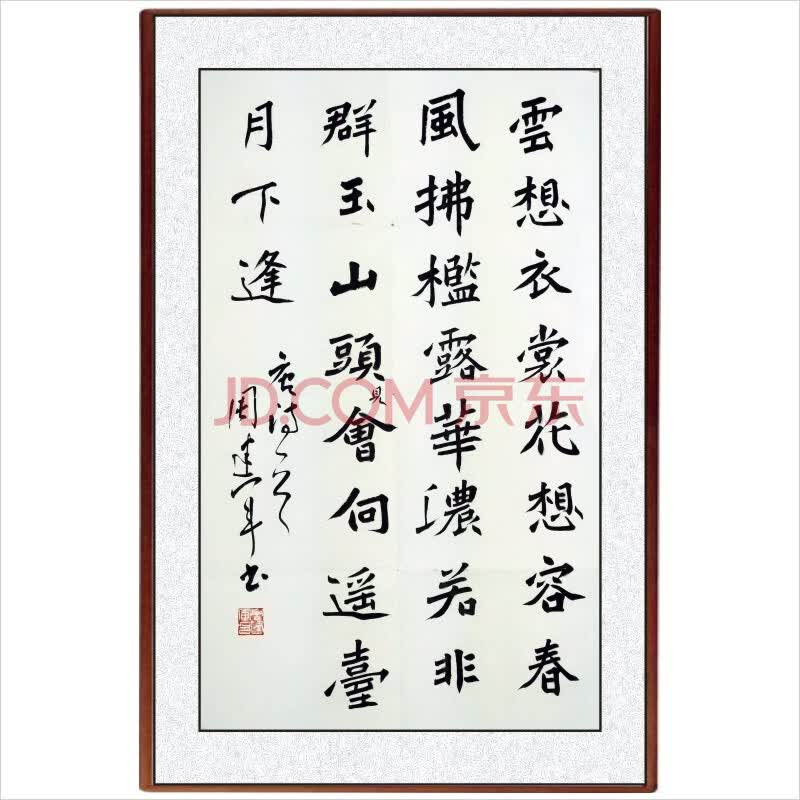 雲想衣裳花想容春
風拂檻露華濃若非
群玉山頭見會向遥臺
月下逢
唐诗一首
周建军书
JD.COM 京东